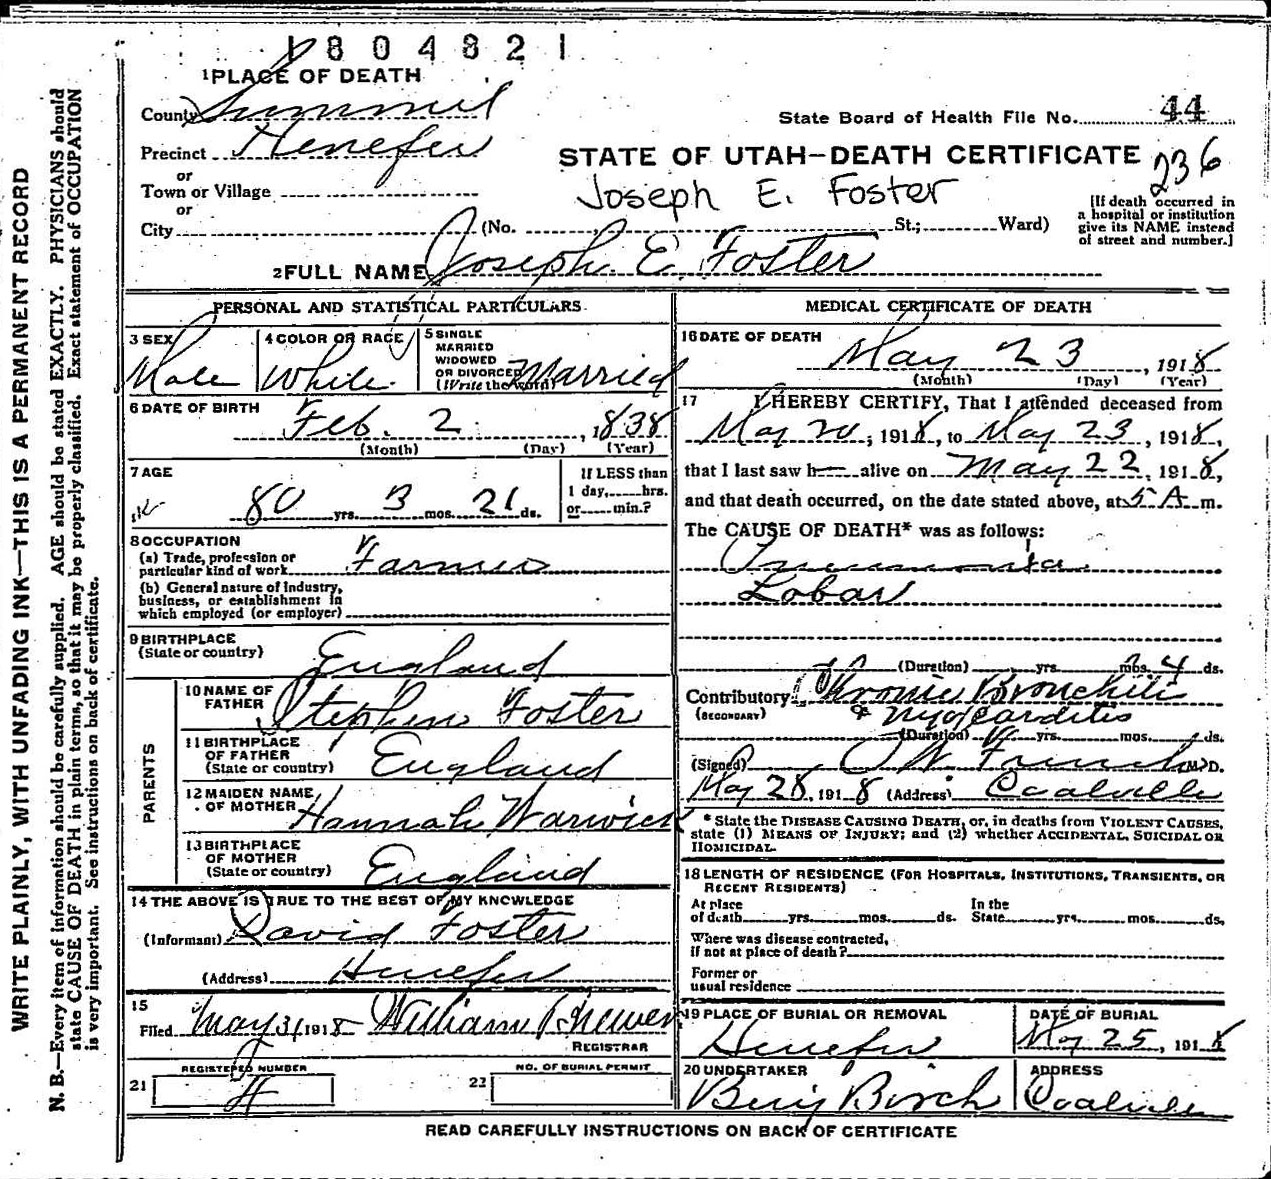 1804821
1 PLACE OF DEATH
County Summit
State Board of Health File No. 44
Precinct Henefer
or
STATE OF UTAH—DEATH CERTIFICATE
236
Town or Village
Joseph E. Foster
or
City (No. St.; Ward)
[If death occurred in
a hospital or institution
give its NAME instead
of street and number.]
2 FULL NAME Joseph E. Foster
PERSONAL AND STATISTICAL PARTICULARS
3 SEX
Male
4 COLOR OR RACE
White
5 SINGLE
MARRIED
WIDOWED
OR DIVORCED
(Write the word) Married
6 DATE OF BIRTH
Feb. 2, 1838
(Month) (Day) (Year)
7 AGE
80 yrs. 3 mos. 21 ds.
If LESS than
1 day, hrs.
or min.?
8 OCCUPATION
(a) Trade, profession or
particular kind of work Farmer
(b) General nature of Industry,
business, or establishment in
which employed (or employer)
9 BIRTHPLACE
(State or country) England
PARENTS
10 NAME OF
FATHER Stephen Foster
11 BIRTHPLACE
OF FATHER
(State or country) England
12 MAIDEN NAME
OF MOTHER Hannah Warwick
13 BIRTHPLACE
OF MOTHER
(State or country) England
14 THE ABOVE IS TRUE TO THE BEST OF MY KNOWLEDGE
(Informant) David Foster
(Address) Henefer
15
Filed May 31 1918 William
REGISTRAR
REGISTERED NUMBER
21 4
NO. OF BURIAL PERMIT
22
MEDICAL CERTIFICATE OF DEATH
16 DATE OF DEATH
May 23, 1918
(Month) (Day) (Year)
17 I HEREBY CERTIFY, That I attended deceased from
May 20, 1918, to May 23, 1918,
that I last saw h alive on May 22, 1918,
and that death occurred, on the date stated above, at 5 A m.
The CAUSE OF DEATH* was as follows:
Pneumonia
Lobar
(Duration) yrs. mos. 4 ds.
Contributory Chronic Bronchitis
(SECONDARY) & Myocarditis
(Duration) yrs. mos. ds.
(Signed) M. D.
May 28, 1918 (Address) Coalville
* State the DISEASE CAUSING DEATH, or, in deaths from VIOLENT CAUSES,
state (1) MEANS OF INJURY; and (2) whether ACCIDENTAL, SUICIDAL OR
HOMICIDAL.
18 LENGTH OF RESIDENCE (FOR HOSPITALS, INSTITUTIONS, TRANSIENTS, OR
RECENT RESIDENTS)
At place
of death yrs. mos. ds.
In the
State yrs. mos. ds.
Where was disease contracted,
if not at place of death?
Former or
usual residence
19 PLACE OF BURIAL OR REMOVAL
Henefer
DATE OF BURIAL
May 25, 1918
20 UNDERTAKER
Birch
ADDRESS
Coalville
READ CAREFULLY INSTRUCTIONS ON BACK OF CERTIFICATE
WRITE PLAINLY, WITH UNFADING INK—THIS IS A PERMANENT RECORD
N. B.—Every item of information should be carefully supplied. AGE should be stated EXACTLY. PHYSICIANS should
state CAUSE OF DEATH in plain terms, so that it may be properly classified. Exact statement of OCCUPATION
is very important. See instructions on back of certificate.